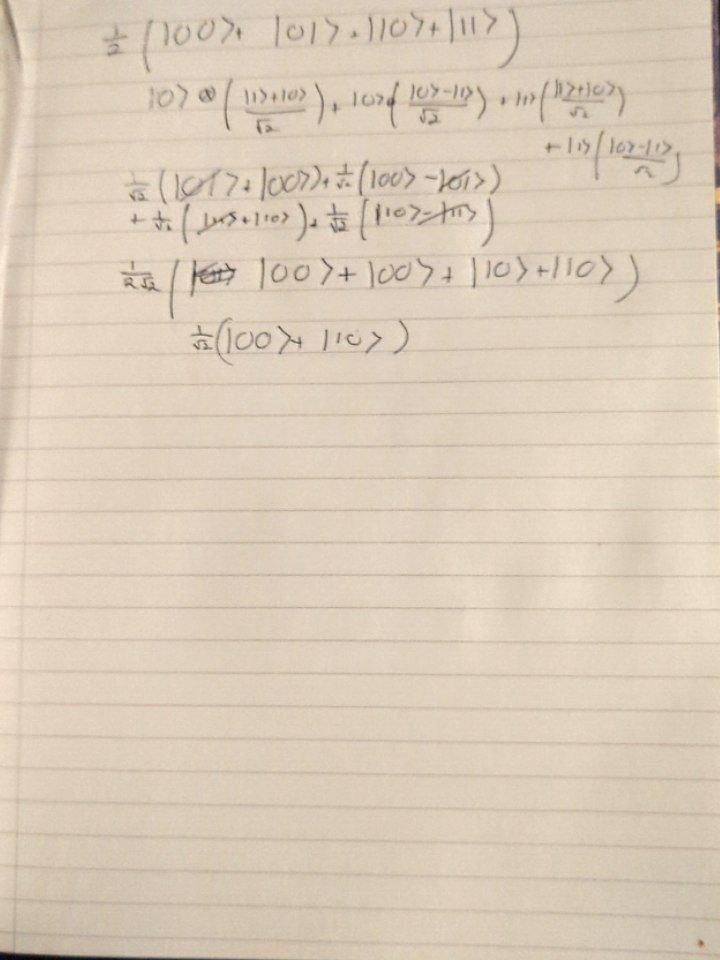 1/2 (|00> + |01> + |10> + |11>)
|0> ⊗ (|1>+|0>/√2) + |0> (|0>-|1>/√2) + |1> (|1>+|0>/√2)
+ |1> (|0>-|1>/√2)
1/√2 (|01> + |00>) + 1/√2 (|00> - |01>)
+ 1/√2 (|11> + |10>) + 1/√2 (|10> - |11>)
1/2√2 (|00> + |00> + |10> + |10>)
1/√2 (|00> + |10>)